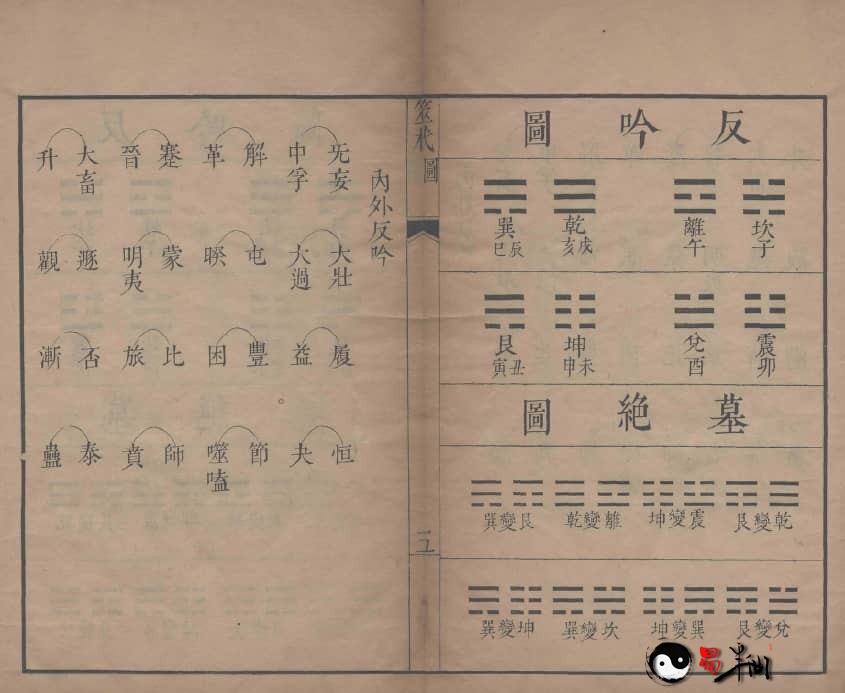 反吟圖
坎子
離午
乾戌亥
巽辰巳
震卯
兌酉
坤未申
艮丑寅
墓絕圖
乾變艮
震變坤
離變乾
艮變巽
兌變艮
巽變坤
坎變巽
坤變巽
圖
內外反吟
旡妄 中孚 解 革 蹇 晉 大畜 升
大壯 大過 屯 睽 蒙 明夷 遯 觀
履 益 豐 困 比 旅 否 漸
恒 夬 節 噬嗑 師 賁 泰 蠱
易半仙